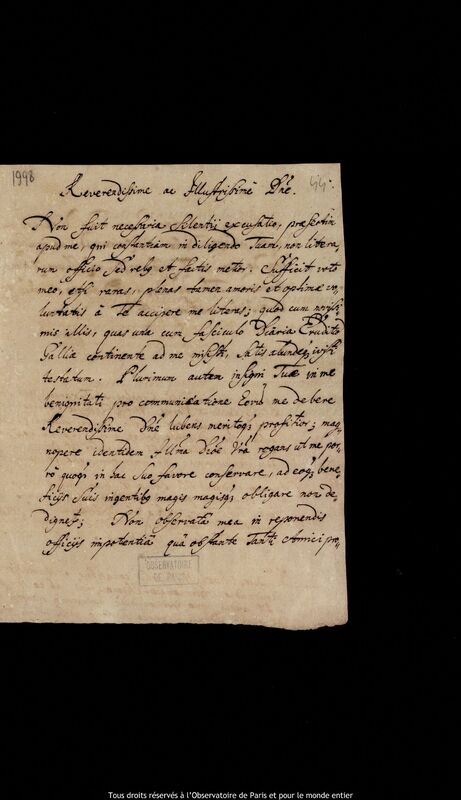 1998
44.
Reverendissime ac Illustrissime Dne.
Non fuit necessaria silentij excusatio, præsertim
apud me, qui constantiam in diligendo Tuam, non litera-
rum officio sed rebq et factis metior. Sufficit voto
meo, etsi raras, plenas tamen amoris et optimæ vo-
luntatis à Te accipere me literas; quod cum novissi-
mis illis, quas una cum fasciculo Diaria Erudito
Galliæ continente ad me misisti, satis abunde
testatum. Plurimum autem insigni Tuæ in me
benignitati pro communicatione Eorum me debere
Reverendissime Dne lubens meritoq; profiteor; mag-
nopere identidem Illma Dnoe Vra rogans ut me por-
rò quoq; in hac suo favore conservare, ad eoq; bene-
ficijs suis ingentibq magis magisq; obligare non de-
dignet; Non observata mea in reponendis
officijs impotentia quâ obstante Tanti Amici pro-
OBSERVATOIRE
DE PARIS
Tous droits réservés à l'Observatoire de Paris et pour le monde entier